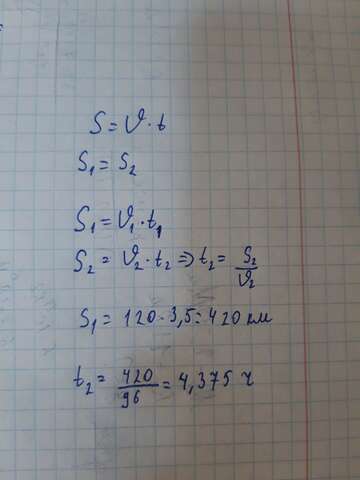 S = υ · t
S₁ = S₂
S₁ = υ₁ · t₁
S₂ = υ₂ · t₂ ⇒ t₂ = S₂/υ₂
S₁ = 120 · 3,5 = 420 км
t₂ = 420/96 = 4,375 ч